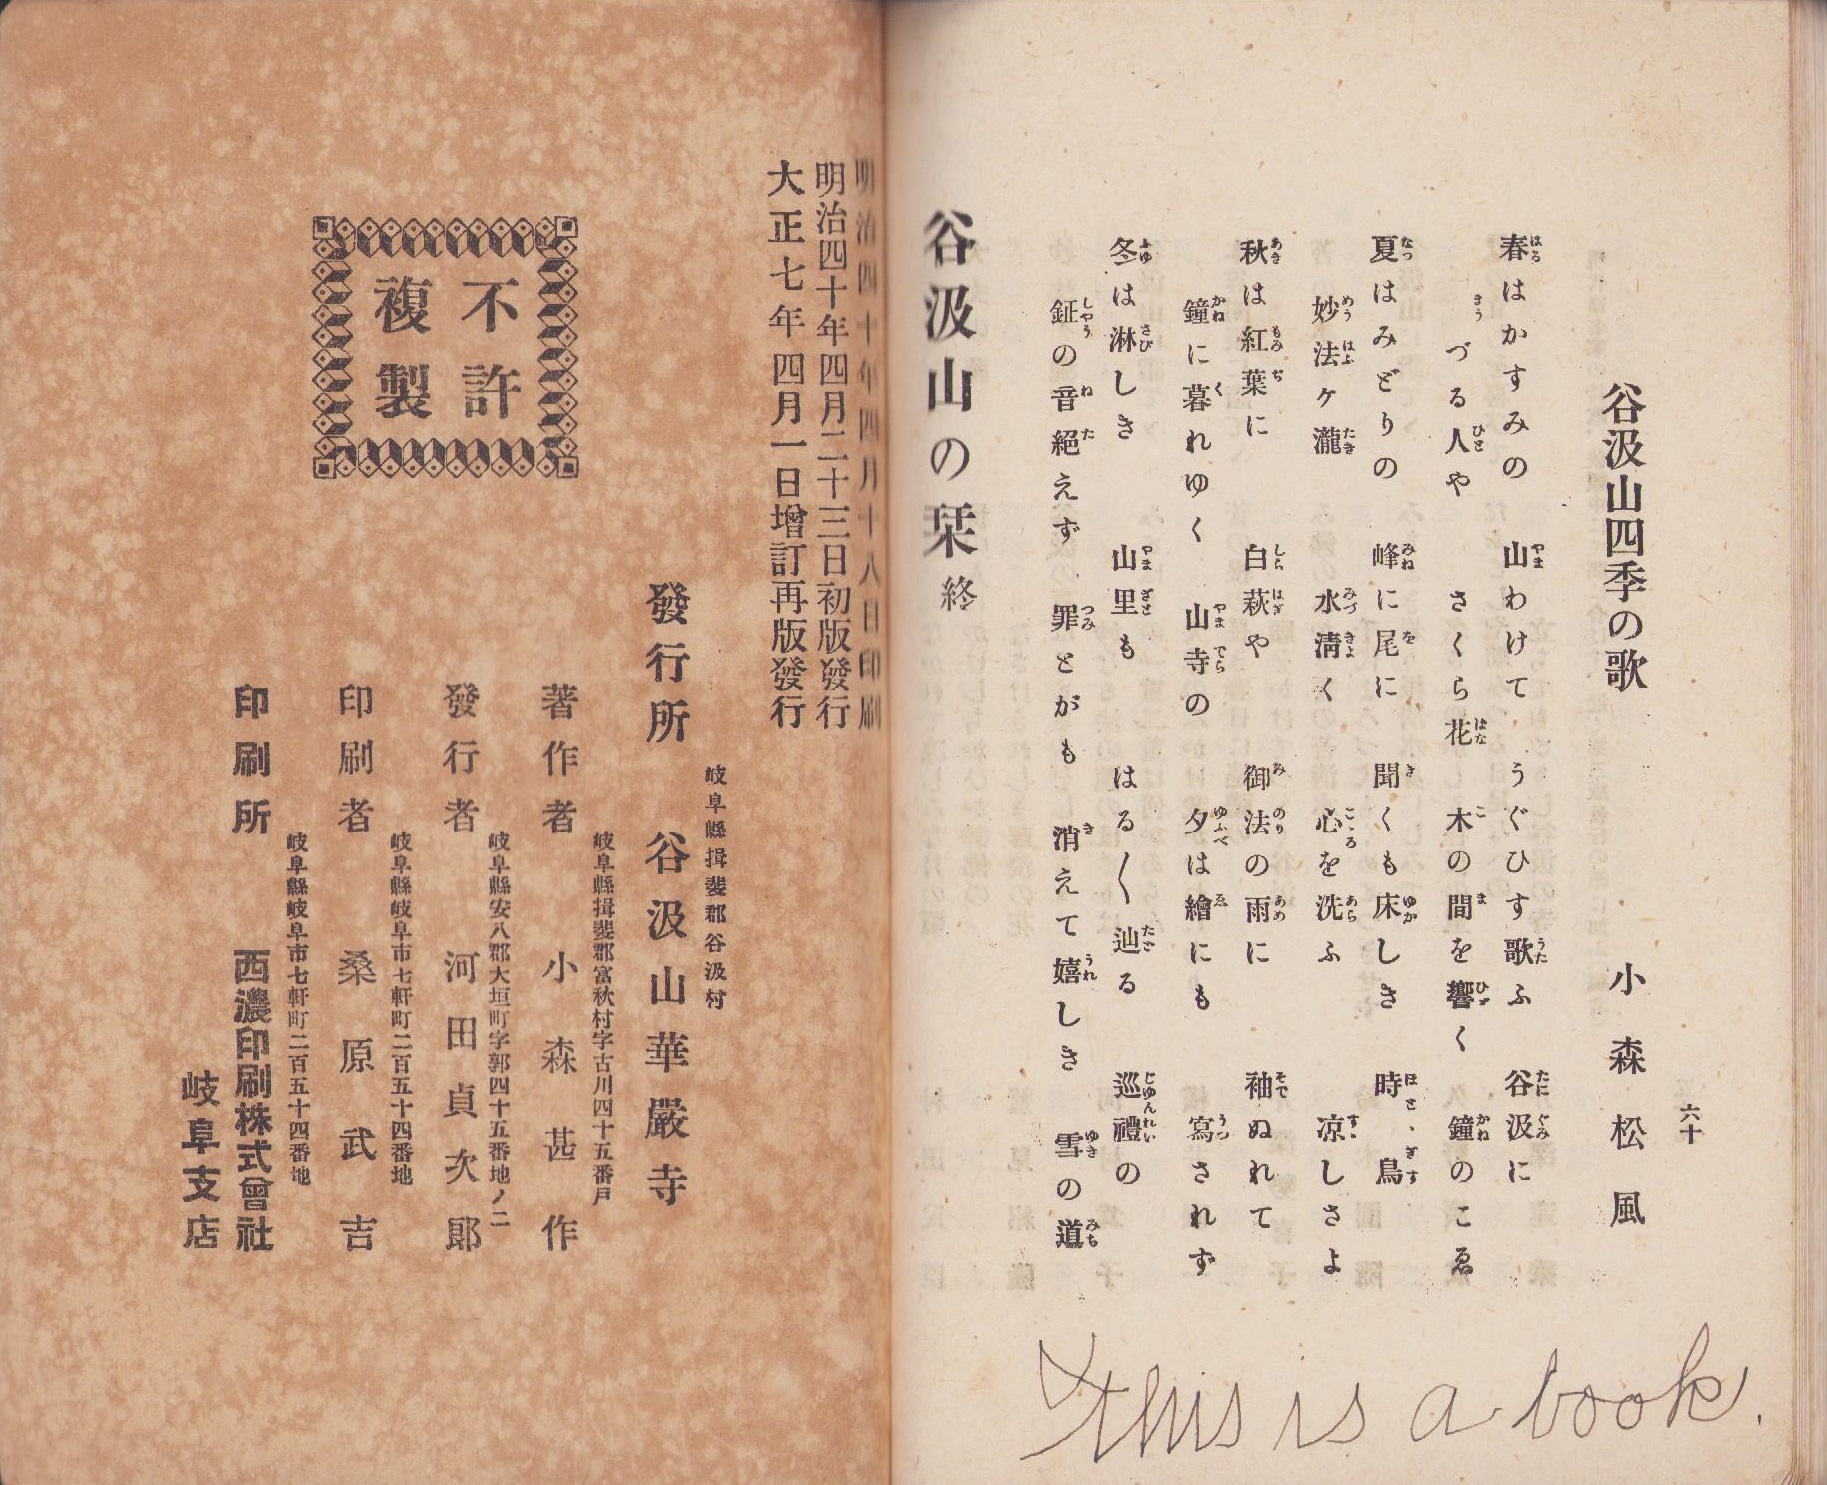 六十
谷汲山四季の歌
小森松風
春はかすみの　山わけて　うぐひす歌ふ　谷汲に
きうづる人や　さくら花　木の間を響く　鐘のこゑ
夏はみどりの　峰に尾に　聞くも床しき　時鳥
妙法ヶ瀧　水淸く　心を洗ふ　凉しさよ
秋は紅葉に　白萩や　御法の雨に　袖ぬれて
鐘に暮れゆく　山寺の　夕は繪にも　寫されず
冬は淋しき　山里も　はる〱辿る　巡禮の
鉦の音絕えず　罪とがも　消えて嬉しき　雪の道
谷汲山の栞 終
this is a book.
明治四十年四月十八日印刷
明治四十年四月二十三日初版發行
大正七年四月一日增訂再版發行
岐阜縣揖斐郡谷汲村
發行所　谷汲山華嚴寺
岐阜縣揖斐郡富秋村字古川四十五番戶
著作者　小森甚作
岐阜縣安八郡大垣町字郭四十五番地ノ二
發行者　河田貞次郞
岐阜縣岐阜市七軒町二百五十四番地
印刷者　桑原武吉
岐阜縣岐阜市七軒町二百五十四番地
印刷所　西濃印刷株式會社
岐阜支店
不許
複製